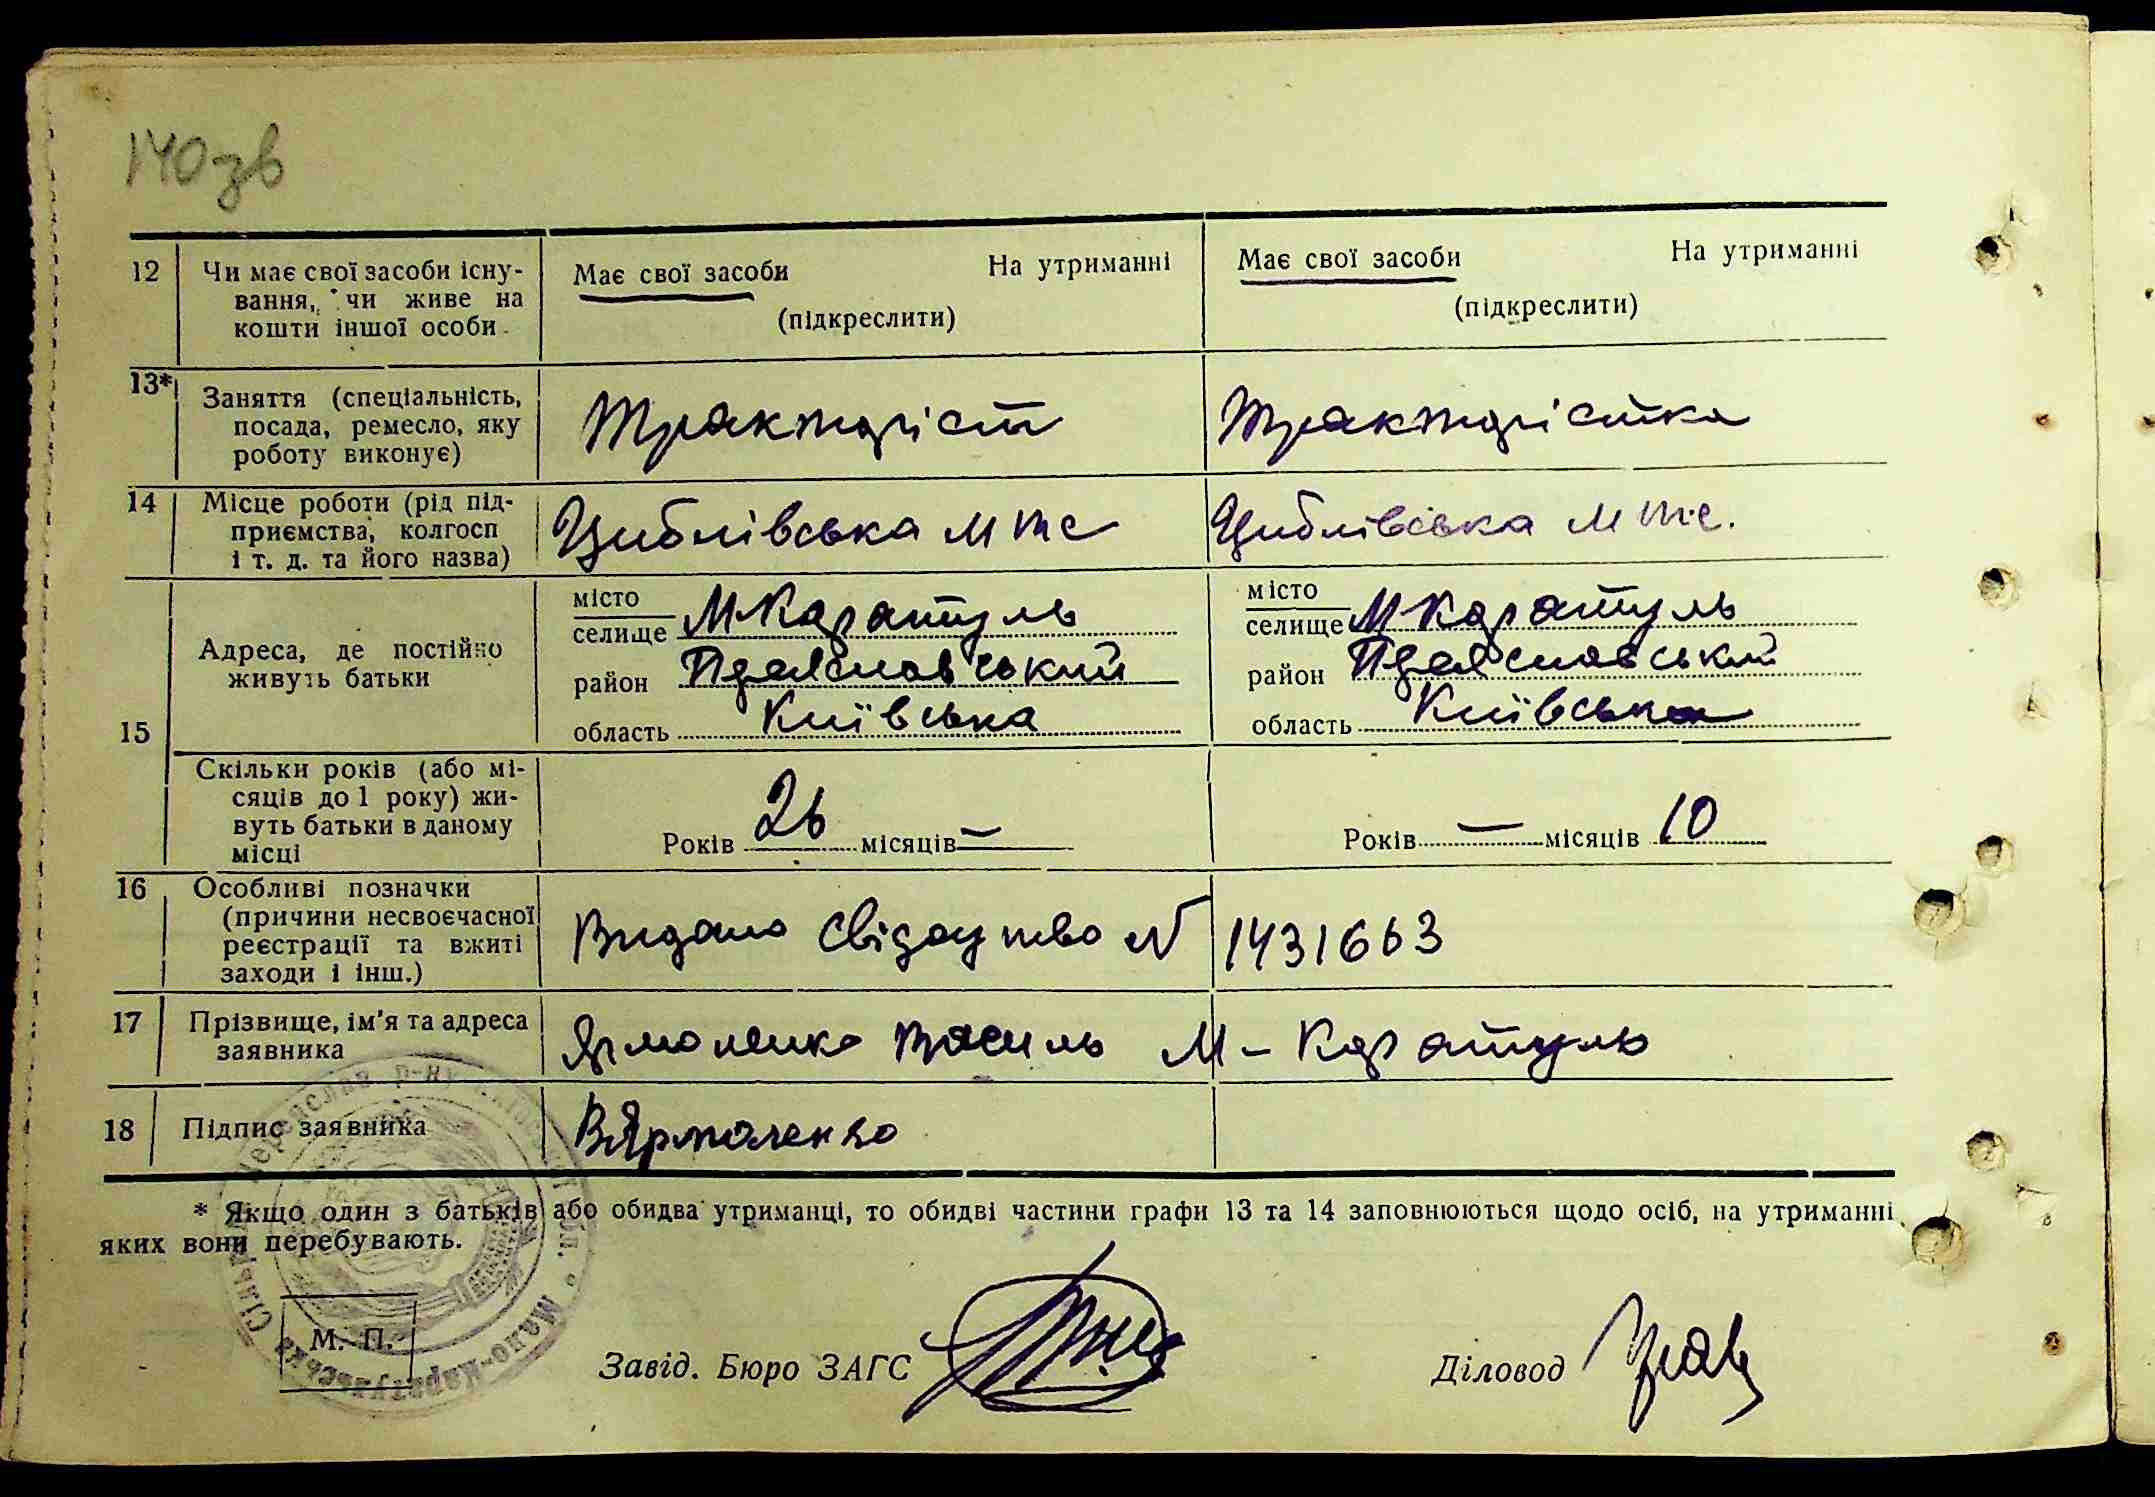 140зв
12 Чи має свої засоби існу-
вання, чи живе на
кошти іншої особи
Має свої засоби На утриманні
(підкреслити)
Має свої засоби На утриманні
(підкреслити)
13* Заняття (спеціальність,
посада, ремесло, яку
роботу виконує)
Тракторіст
Тракторістка
14 Місце роботи (рід під-
приємства, колгосп
і т. д. та його назва)
Циблівська мтс
Циблівська мтс.
15 Адреса, де постійно
живуть батьки
місто
селище МКаратуль
район Переяславський
область Київська
місто
селище МКаратуль
район Переяславський
область Київська
Скільки років (або мі-
сяців до 1 року) жи-
вуть батьки в даному
місці
Років 26 місяців —
Років — місяців 10
16 Особливі позначки
(причини несвоєчасної
реєстрації та вжиті
заходи і інш.)
Видано свідоцтво N 1431663
17 Прізвище, ім'я та адреса
заявника
Ярмоленко Василь М-Каратуль
18 Підпис заявника
ВЯрмоленко
* Якщо один з батьків або обидва утриманці, то обидві частини графи 13 та 14 заповнюються щодо осіб, на утриманні
яких вони перебувають.
М. П.
Завід. Бюро ЗАГС
Діловод
Мало-Каратульська